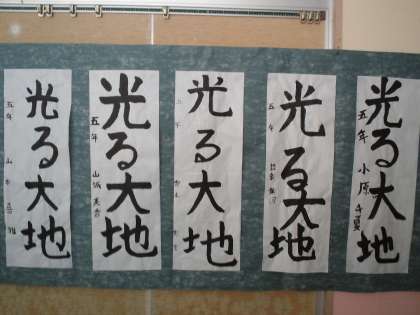 光る大地
五年
光る大地
五年 山城
光る大地
光る大地
五年
光る大地
五年 小原